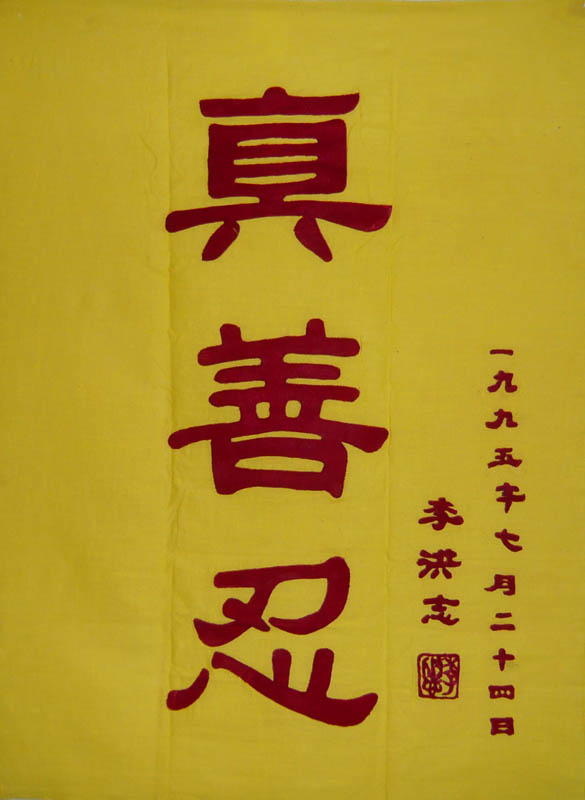 真善忍
一九九五年七月二十四日
李洪志